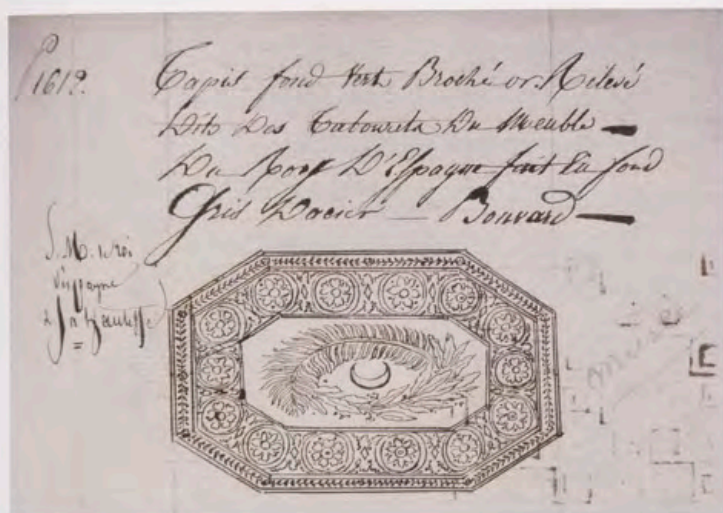 P 1612.
Tapis fond Vert Broché or Relevé
Dits Des Tabourets Du Meuble
Du Roy D'Espagne fait En fond
Gris Dacier — Bonnard
S. M. le roi
d'espagne
musée